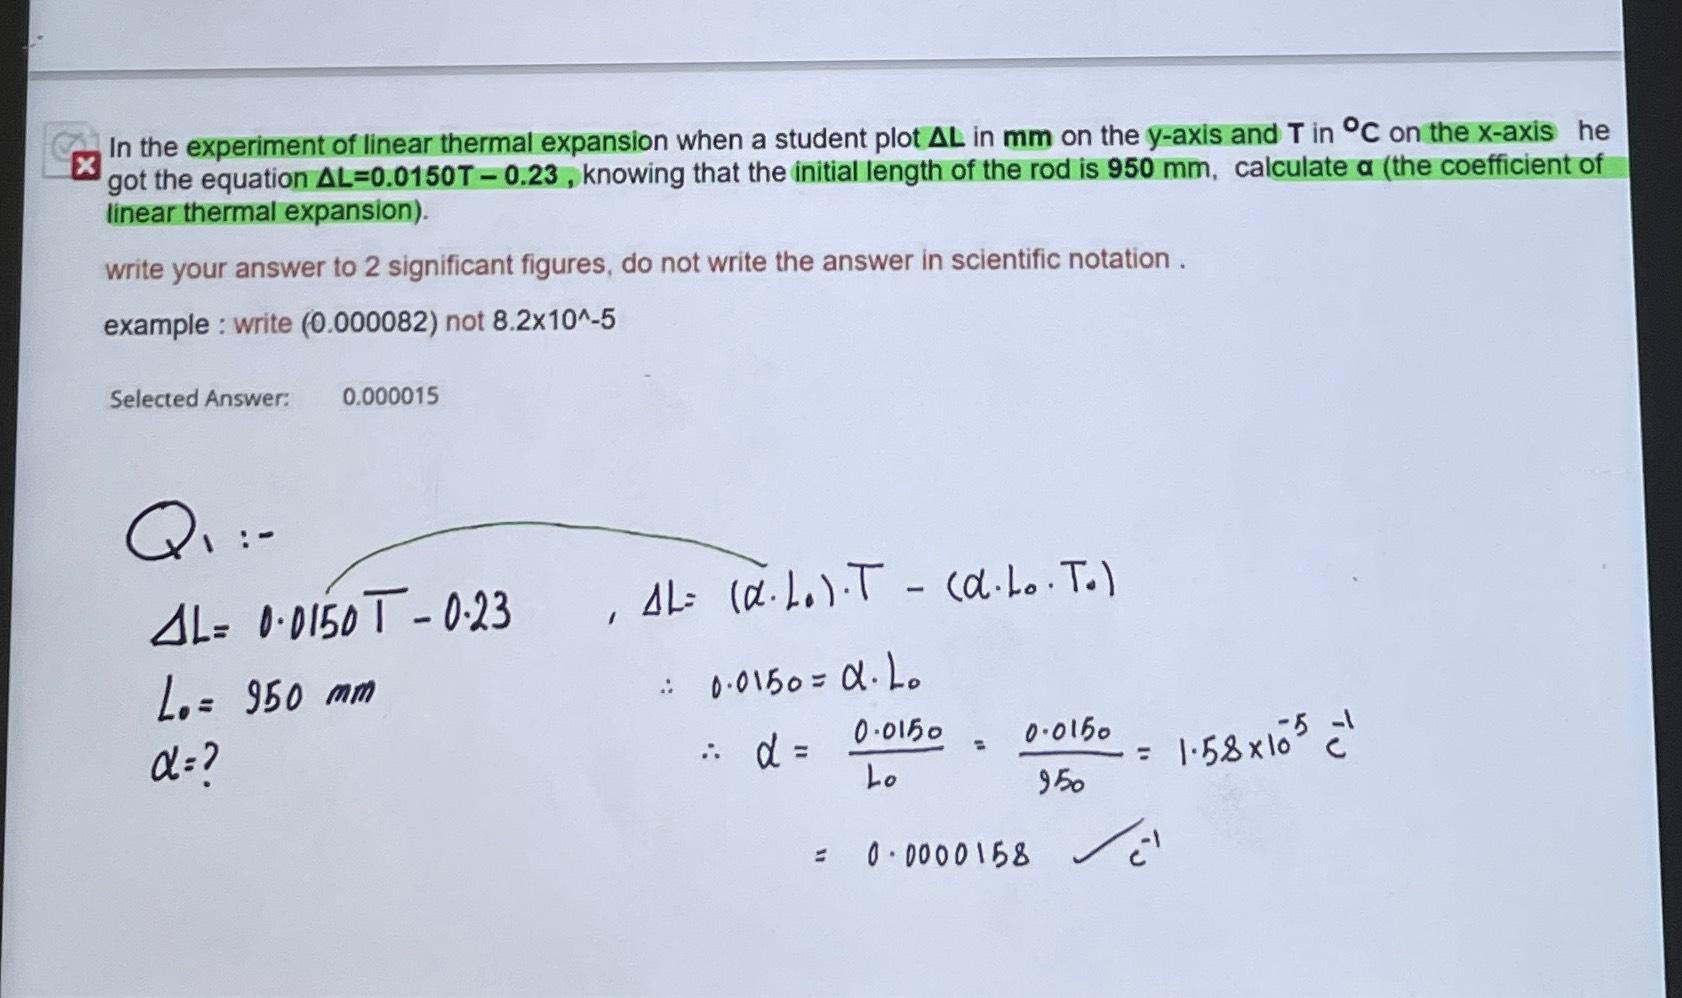 In the experiment of linear thermal expansion when a student plot ΔL in mm on the y-axis and T in ⁰C on the x-axis he
got the equation ΔL=0.0150T – 0.23 , knowing that the initial length of the rod is 950 mm, calculate α (the coefficient of
linear thermal expansion).
write your answer to 2 significant figures, do not write the answer in scientific notation .
example : write (0.000082) not 8.2x10^-5
Selected Answer: 0.000015
Q1 :-
ΔL= 0.0150T - 0.23 , ΔL= (α.L₀).T - (α.L₀.T₀)
L₀= 950 mm ∴ 0.0150 = α.L₀
α=? ∴ α = 0.0150/L₀ = 0.0150/950 = 1.58×10⁻⁵ c⁻¹
= 0.0000158 c⁻¹